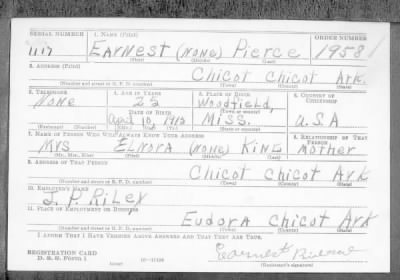 SERIAL NUMBER 1. NAME (Print) ORDER NUMBER
1117 EARNEST (NONE) PIERCE 1958
(First) (Middle) (Last)
2. ADDRESS (Print)
CHICOT CHICOT ARK.
(Number and street or R. F. D. number) (Town) (County) (State)
3. TELEPHONE 4. AGE IN YEARS 5. PLACE OF BIRTH 6. COUNTRY OF CITIZENSHIP
NONE WOODFIELD,
DATE OF BIRTH (Town or county)
April 10, MISS. U.S.A
(Exchange) (Number) (Mo.) (Day) (Yr.) (State or country)
7. NAME OF PERSON WHO WILL ALWAYS KNOW YOUR ADDRESS 8. RELATIONSHIP OF THAT PERSON
MRS ELNORA (NONE) KING MOTHER
(Mr., Mrs., Miss) (First) (Middle) (Last)
9. ADDRESS OF THAT PERSON
CHICOT CHICOT ARK
(Number and street or R. F. D. number) (Town) (County) (State)
10. EMPLOYER'S NAME
J. P. RILEY
11. PLACE OF EMPLOYMENT OR BUSINESS
EUDORA CHICOT ARK
(Number and street or R. F. D. number) (Town) (County) (State)
I AFFIRM THAT I HAVE VERIFIED ABOVE ANSWERS AND THAT THEY ARE TRUE.
REGISTRATION CARD
D. S. S. FORM 1 16-17105 (Registrant's signature)
Earnest Pierce